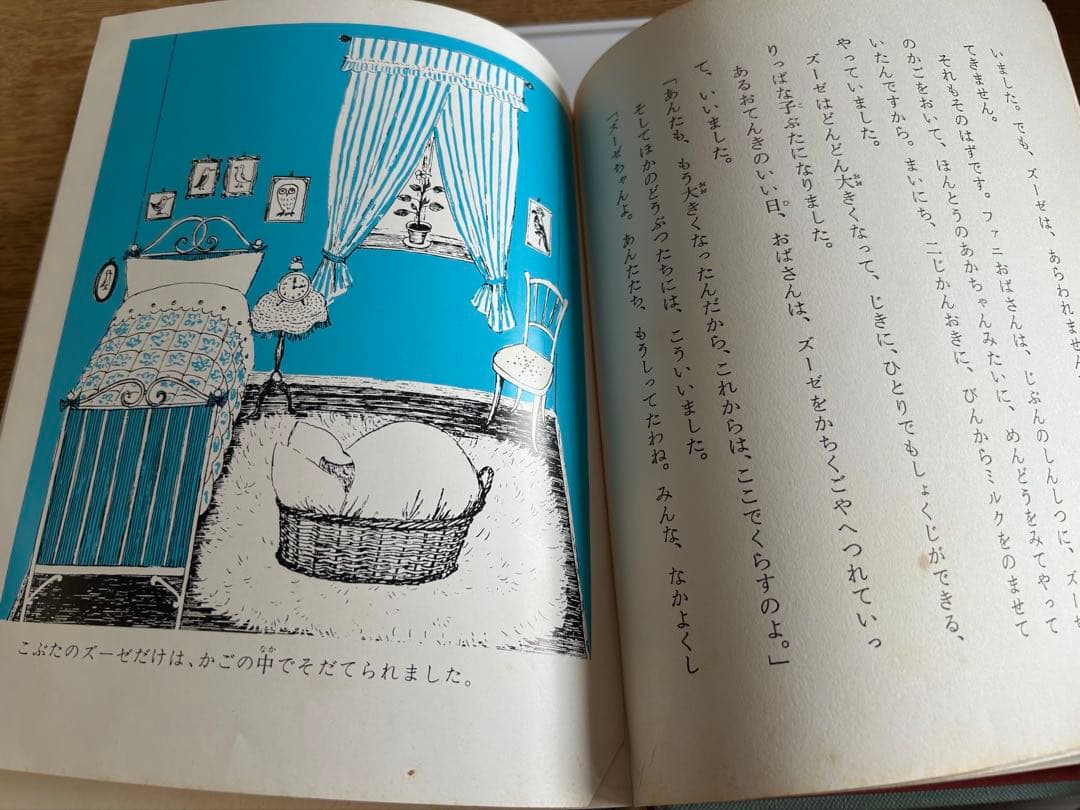 いました。でも、ズーゼは、あらわれません
てきません。
それもそのはずです。ファニおばさんは、じぶんのしんしつに、ズーゼ
のかごをおいて、ほんとうのあかちゃんみたいに、めんどうをみてやって
いたんですから。まいにち、二じかんおきに、びんからミルクをのませて
やっていました。
ズーゼはどんどん大きくなって、じきに、ひとりでもしょくじができる、
りっぱな子ぶたになりました。
あるおてんきのいい日、おばさんは、ズーゼをかちくごやへつれていっ
て、いいました。
「あんたも、もう大きくなったんだから、これからは、ここでくらすのよ。」
そしてほかのどうぶつたちには、こういいました。
「ズーゼちゃんよ。あんたたち、もうしってたわね。みんな、なかよくし
こぶたのズーゼだけは、かごの中でそだてられました。